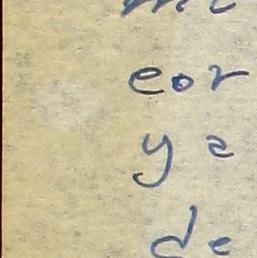 eor
ya
de